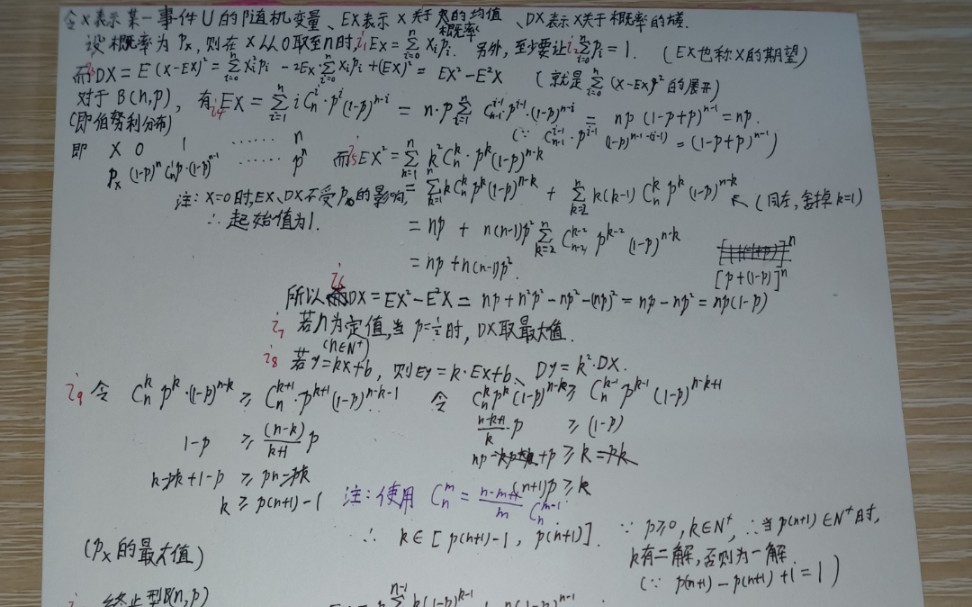 令X表示某一事件U的随机变量、EX表示X关于概率的均值、DX表示X关于概率的
设概率为Pₓ,则在X从0取至n时,i₁ EX=∑_{i=0}^{n} xᵢpᵢ. 另外,至少要让 i₂ ∑_{i=0}^{n} pᵢ=1. (EX也称X的期望)
而 i₃ DX=E(X-EX)²=∑_{i=0}^{n} xᵢ²pᵢ-2EX·∑_{i=0}^{n} xᵢpᵢ+(EX)²=EX²-E²X (就是∑_{i=0}^{n}(X-EX)²p的展开)
对于B(n,p),有 i₄ EX=∑_{i=1}^{n} iC_n^i·p^i(1-p)^{n-i}=n·p∑_{i=1}^{n} C_{n-1}^{i-1}·p^{i-1}·(1-p)^{n-i}=np(1-p+p)^{n-1}=np.
(即伯努利分布) (∵ C_{n-1}^{i-1}·p^{i-1}(1-p)^{n-1-(i-1)}=(1-p+p)^{n-1})
即 X 0 1 …… n
Pₓ (1-p)^n C_n^1p·(1-p)^{n-1} …… p^n 而 i₅ EX²=∑_{k=1}^{n} k²C_n^k·p^k(1-p)^{n-k}
注:X=0时,EX、DX不受p₀的影响, =∑_{k=1}^{n} kC_n^k p^k(1-p)^{n-k}+∑_{k=2}^{n} k(k-1)C_n^k p^k(1-p)^{n-k} (同左,舍掉k=1)
∴起始值为1. =np+n(n-1)p²∑_{k=2}^{n} C_{n-2}^{k-2} p^{k-2}(1-p)^{n-k}
=np+n(n-1)p². [p+(1-p)]^n
i₆ 所以DX=EX²-E²X=np+n²p²-np²-(np)²=np-np²=np(1-p)
i₇ 若n为定值,当p=½时,DX取最大值.
(n∈N⁺)
i₈ 若y=kx+b,则Ey=k·Ex+b、Dy=k²·DX.
i₉ 令 C_n^k p^k·(1-p)^{n-k}≥C_n^{k+1}·p^{k+1}(1-p)^{n-k-1} 令 C_n^k p^k(1-p)^{n-k}≥C_n^{k-1}p^{k-1}(1-p)^{n-k+1}
1-p≥(n-k)/(k+1) p (n-k+1)/k·p≥(1-p)
k-pk+1-p≥pn-pk np-kp+p≥k-pk
k≥p(n+1)-1 (n+1)p≥k
注:使用 C_n^m=(n-m+1)/m C_n^{m-1}
∴k∈[p(n+1)-1,p(n+1)]. ∵p≥0,k∈N⁺,∴当p(n+1)∈N⁺时,
(Pₓ的最大值) k有二解,否则为一解
(∵p(n+1)-p(n+1)+1=1)
终止型B(n,p)